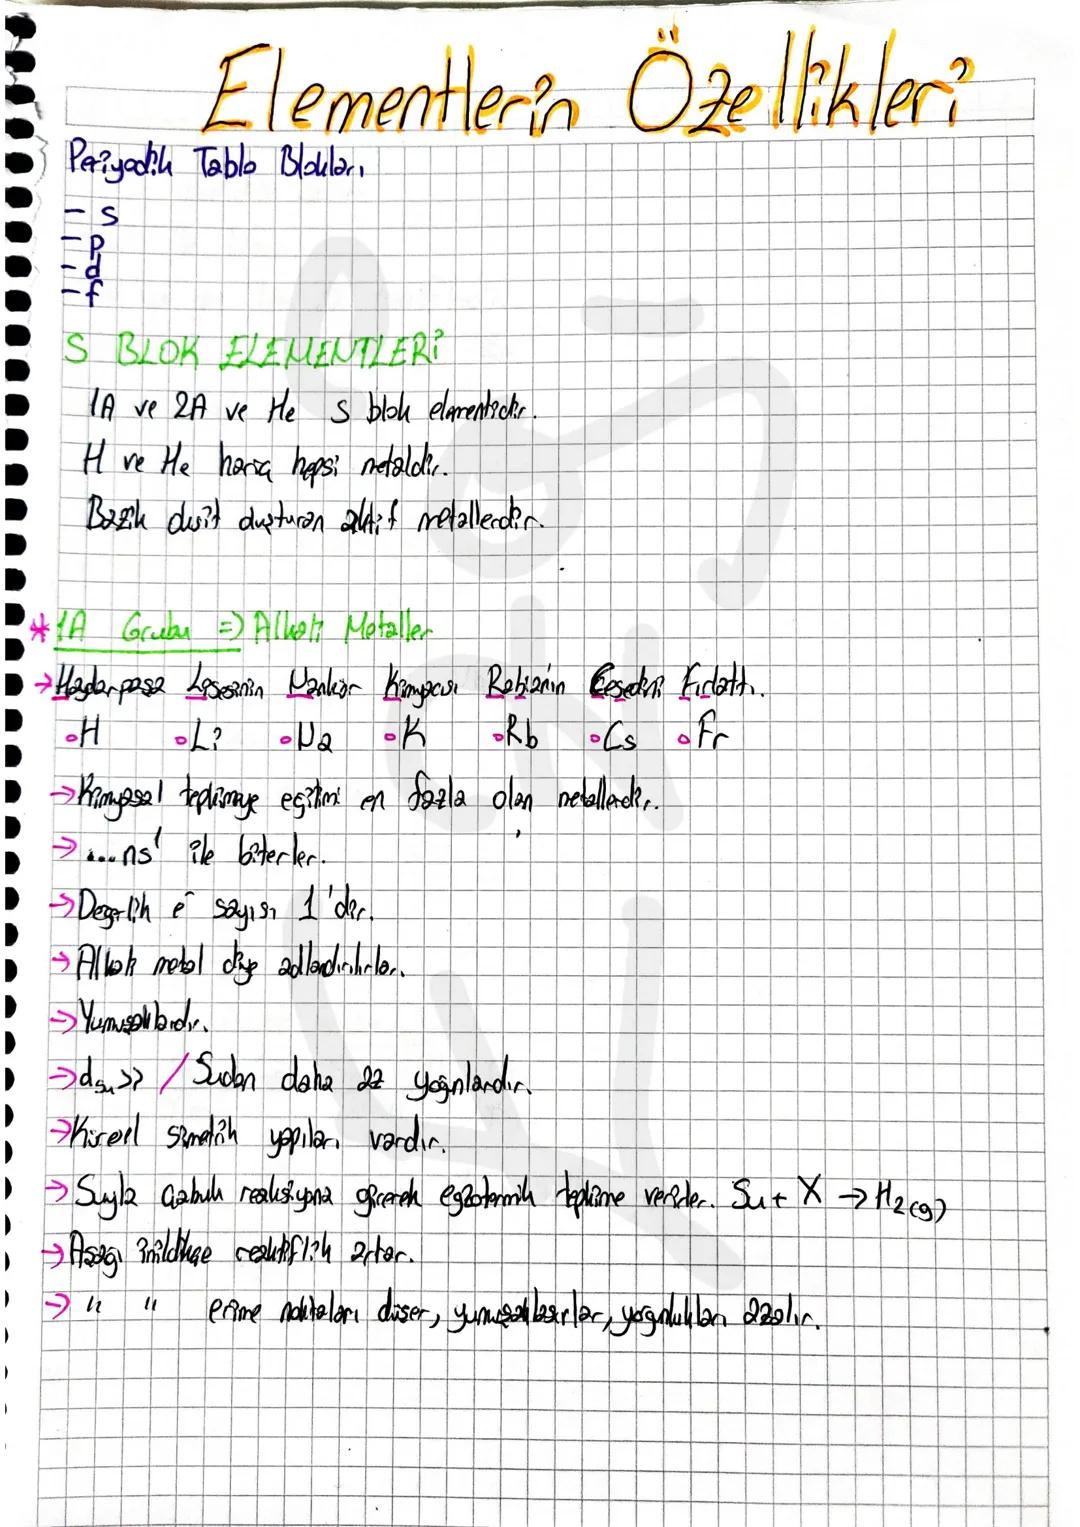 Elementlerin Özellikleri
Periyodik Tablo Blokları
- s
- p
- d
- f
S BLOK ELEMENTLERİ
1A ve 2A ve He S blok elementidir.
H ve He hariç hepsi metaldir.
Bazik oksit oluşturan aktif metallerdir.
* 1A Grubu => Alkali Metaller
→ Haydarpaşa Lisesinin Nankör Kimyacısı Rabia'nin Cesedini Fırlattı.
• H • Li • Na • K • Rb • Cs • Fr
→ Kimyasal tepkimeye eğilimi en fazla olan metallerdir.
→ ...ns¹ ile biterler.
→ Değerlik e⁻ sayısı 1'dir.
→ Alkali metal diye adlandırılırlar.
→ Yumuşaklardır.
→ dsu >> / Sudan daha az yoğunlardır.
→ Küresel simetrik yapıları vardır.
→ Suyla çabuk reaksiyona girerek egzotermik tepkime verirler. Su + X → H₂(g)
→ Aşağı inildikçe reaktiflik artar.
→ " " erime noktaları düşer, yumuşaklaşırlar, yoğunlukları azalır.